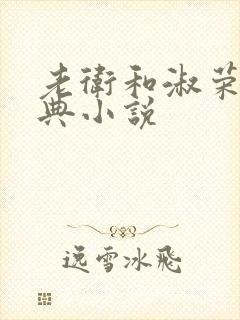 老衛和淑荣
典小説
远雪冰飛